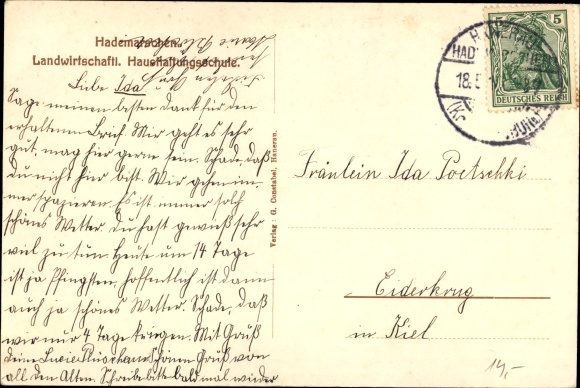 Hademarschen.
Landwirtschaftl. Haushaltungsschule.
Liebe Ida
Sage meinen besten Dank für den
erhaltenen Brief. Mir geht es sehr
gut, mag hier gern sein. Schade, daß
du nicht hier bist. Wir gehen im-
mer spazieren. Es ist immer solch
schönes Wetter. Du hast gewiß sehr
viel zu tun. Heute um 14 Tage
ist ja Pfingsten, hoffentlich ist dann
auch ja schönes Wetter. Schade, daß
wir nur 4 Tage kriegen. Mit Gruß
deine Lucie Schönen Gruß von
all den Alten. Schreibe bitte bald mal wieder
Verlag: G. Constabel, Hanerau.
5 5
DEUTSCHES REICH
HANERAU
18.5
Fräulein Ida Poetschki
Eiderkrug
in Kiel
14,-